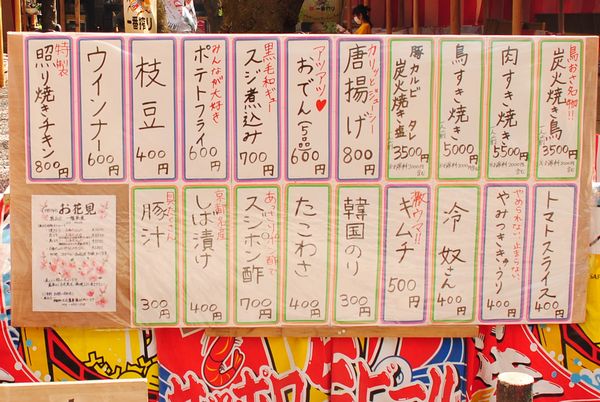 鳥おさ名物!!
炭火焼き鳥
3500円
肉すき焼き
5500円
鳥すき焼き
5000円
豚カルビ タレ
炭火焼き 塩
3500円
カリッとジューシー
唐揚げ
800円
アツアツ
おでん
600円
黒毛和ギュー
スジ煮込み
700円
みんな大好き
ポテトフライ
600円
枝豆
400円
ウインナー
600円
特製
照り焼きチキン
800円
トマトスライス
400円
やめられない、止まらない
やみつききゅうり
400円
冷奴さん
400円
激ウマ!!
キムチ
500円
韓国のり
300円
たこわさ
400円
スジポン酢
700円
京都名産
しば漬け
400円
具だくさん
豚汁
300円
お花見
一番搾り
サッポロ生ビール